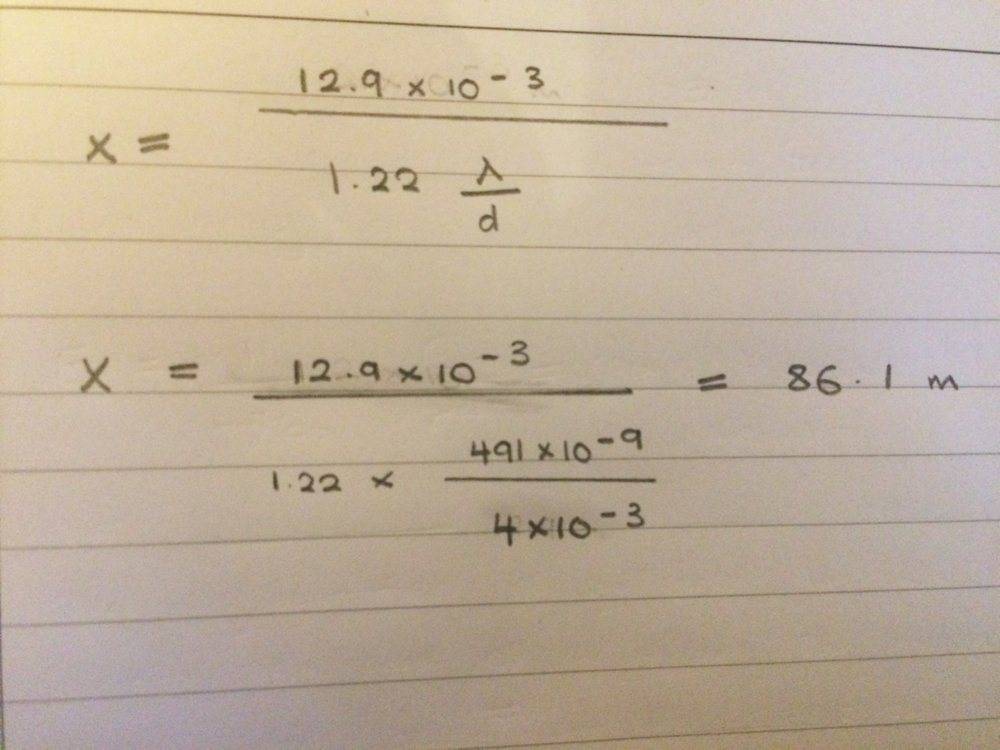 x = 12.9 × 10^-3 / 1.22 λ/d
x = 12.9 × 10^-3 / 1.22 × 491 × 10^-9 / 4 × 10^-3 = 86.1 m